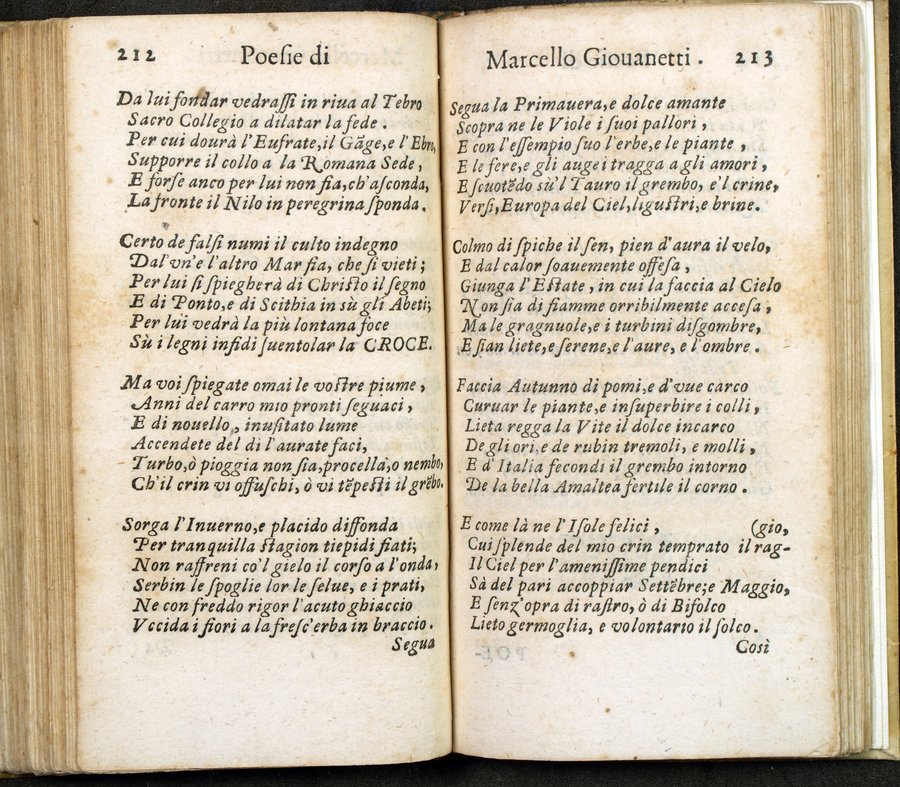 212 Poesie di
Da lui fondar vedraſſi in riua al Tebro
Sacro Collegio a dilatar la fede.
Per cui dourà l'Eufrate,il Gãge,e l'Ebro,
Supporre il collo a la Romana Sede,
E forſe anco per lui non fia,ch'aſconda,
La fronte il Nilo in peregrina ſponda.
Certo de falſi numi il culto indegno
Dal'vn'e l'altro Mar fia, che ſi vieti;
Per lui ſi ſpiegherà di Chriſto il ſegno
E di Ponto,e di Scithia in sù gli Abeti;
Per lui vedrà la più lontana foce
Sù i legni infidi ſuentolar la CROCE.
Ma voi ſpiegate omai le voſtre piume,
Anni del carro mio pronti ſeguaci,
E di nouello, inuſitato lume
Accendete del dì l'aurate faci,
Turbo,ò pioggia non ſia,procella,o nembo,
Ch'il crin vi offuſchi, ò vi tẽpeſti il grẽbo.
Sorga l'Inuerno,e placido diffonda
Per tranquilla ſtagion tiepidi fiati;
Non raffreni co'l gielo il corſo a l'onda,
Serbin le ſpoglie lor le ſelue, e i prati,
Ne con freddo rigor l'acuto ghiaccio
Vccida i fiori a la freſc'erba in braccio.
Segua
Marcello Giouanetti. 213
Segua la Primauera,e dolce amante
Scopra ne le Viole i ſuoi pallori,
E con l'eſſempio ſuo l'erbe,e le piante,
E le fere,e gli augei tragga a gli amori,
E ſcuotẽdo sù'l Tauro il grembo, e'l crine,
Verſi,Europa del Ciel,liguſtri,e brine.
Colmo di ſpiche il ſen, pien d'aura il velo,
E dal calor ſoauemente offeſa,
Giunga l'Eſtate, in cui la faccia al Cielo
Non ſia di fiamme orribilmente acceſa,
Ma le gragnuole,e i turbini diſgombre,
E ſian liete,e ſerene,e l'aure, e l'ombre.
Faccia Autunno di pomi,e d'vue carco
Curuar le piante,e inſuperbire i colli,
Lieta regga la Vite il dolce incarco
De gli ori,e de rubin tremoli, e molli,
E d'Italia fecondi il grembo intorno
De la bella Amaltea fertile il corno.
E come là ne l'Iſole felici, (gio,
Cui ſplende del mio crin temprato il rag-
Il Ciel per l'ameniſſime pendici
Sà del pari accoppiar Settẽbre;e Maggio,
E ſenz'opra di raſtro, ò di Bifolco
Lieto germoglia, e volontario il ſolco.
Così